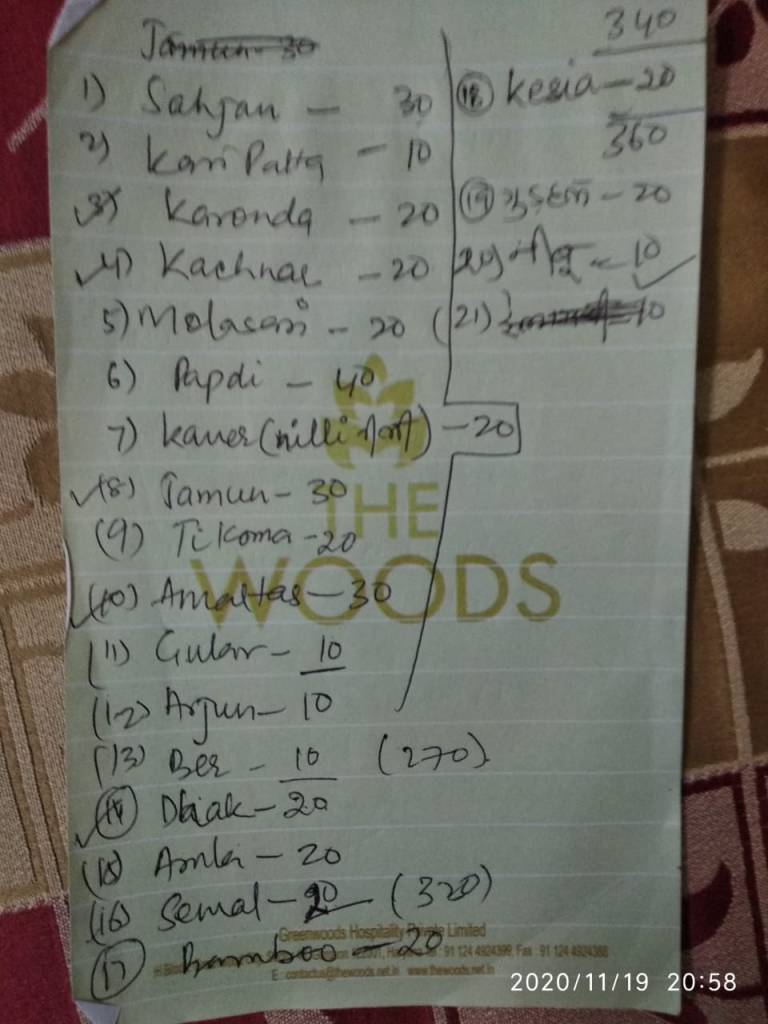 Jamun - 30
1) Sahjan - 30
2) Kari Patta - 10
3) Karonda - 20
4) Kachnar - 20
5) Molasari - 20
6) Papdi - 40
7) Kaner (nilli) - 20
(8) Jamun - 30
(9) Tikoma - 20
(10) Amaltas - 30
(11) Gular - 10
(12) Arjun - 10
(13) Ber - 10 (270)
(14) Dhak - 20
(15) Amla - 20
(16) Semal - 20 (320)
(17) Bamboo - 20
340
(18) Kesia - 20
360
(19) - 20
20) नींबू - 10
(21) 10
THE
WOODS
Greenwoods Hospitality Private Limited
91 124 4924399, Fax : 91 124 4924388
E : contactus@thewoods.net.in www.thewoods.net.in
2020/11/19 20:58